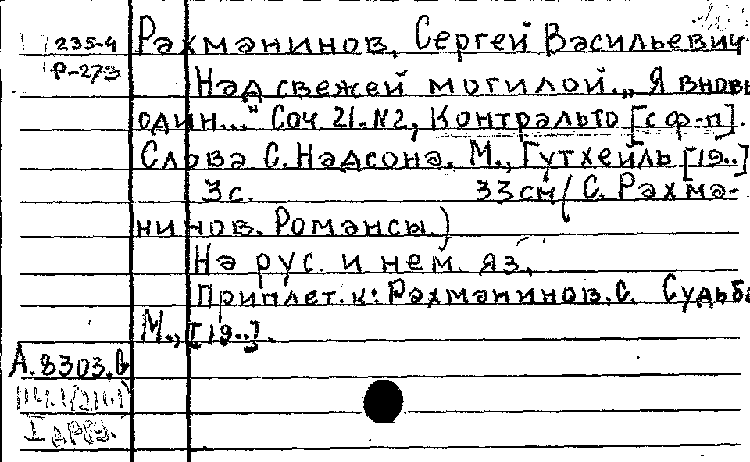 235-4
Р-273
Рахманинов, Сергей Васильевич
Над свежей могилой. „Я вновь
один..." Соч. 21. №2, Контральто [с ф-п].
Слова С. Надсона. М., Гутхейль [19..]
3 с. 33 см (С. Рахма-
нинов. Романсы.)
На рус. и нем. яз.
Приплет. к: Рахманинов. С. Судьба
М., [19..].
А.8303.